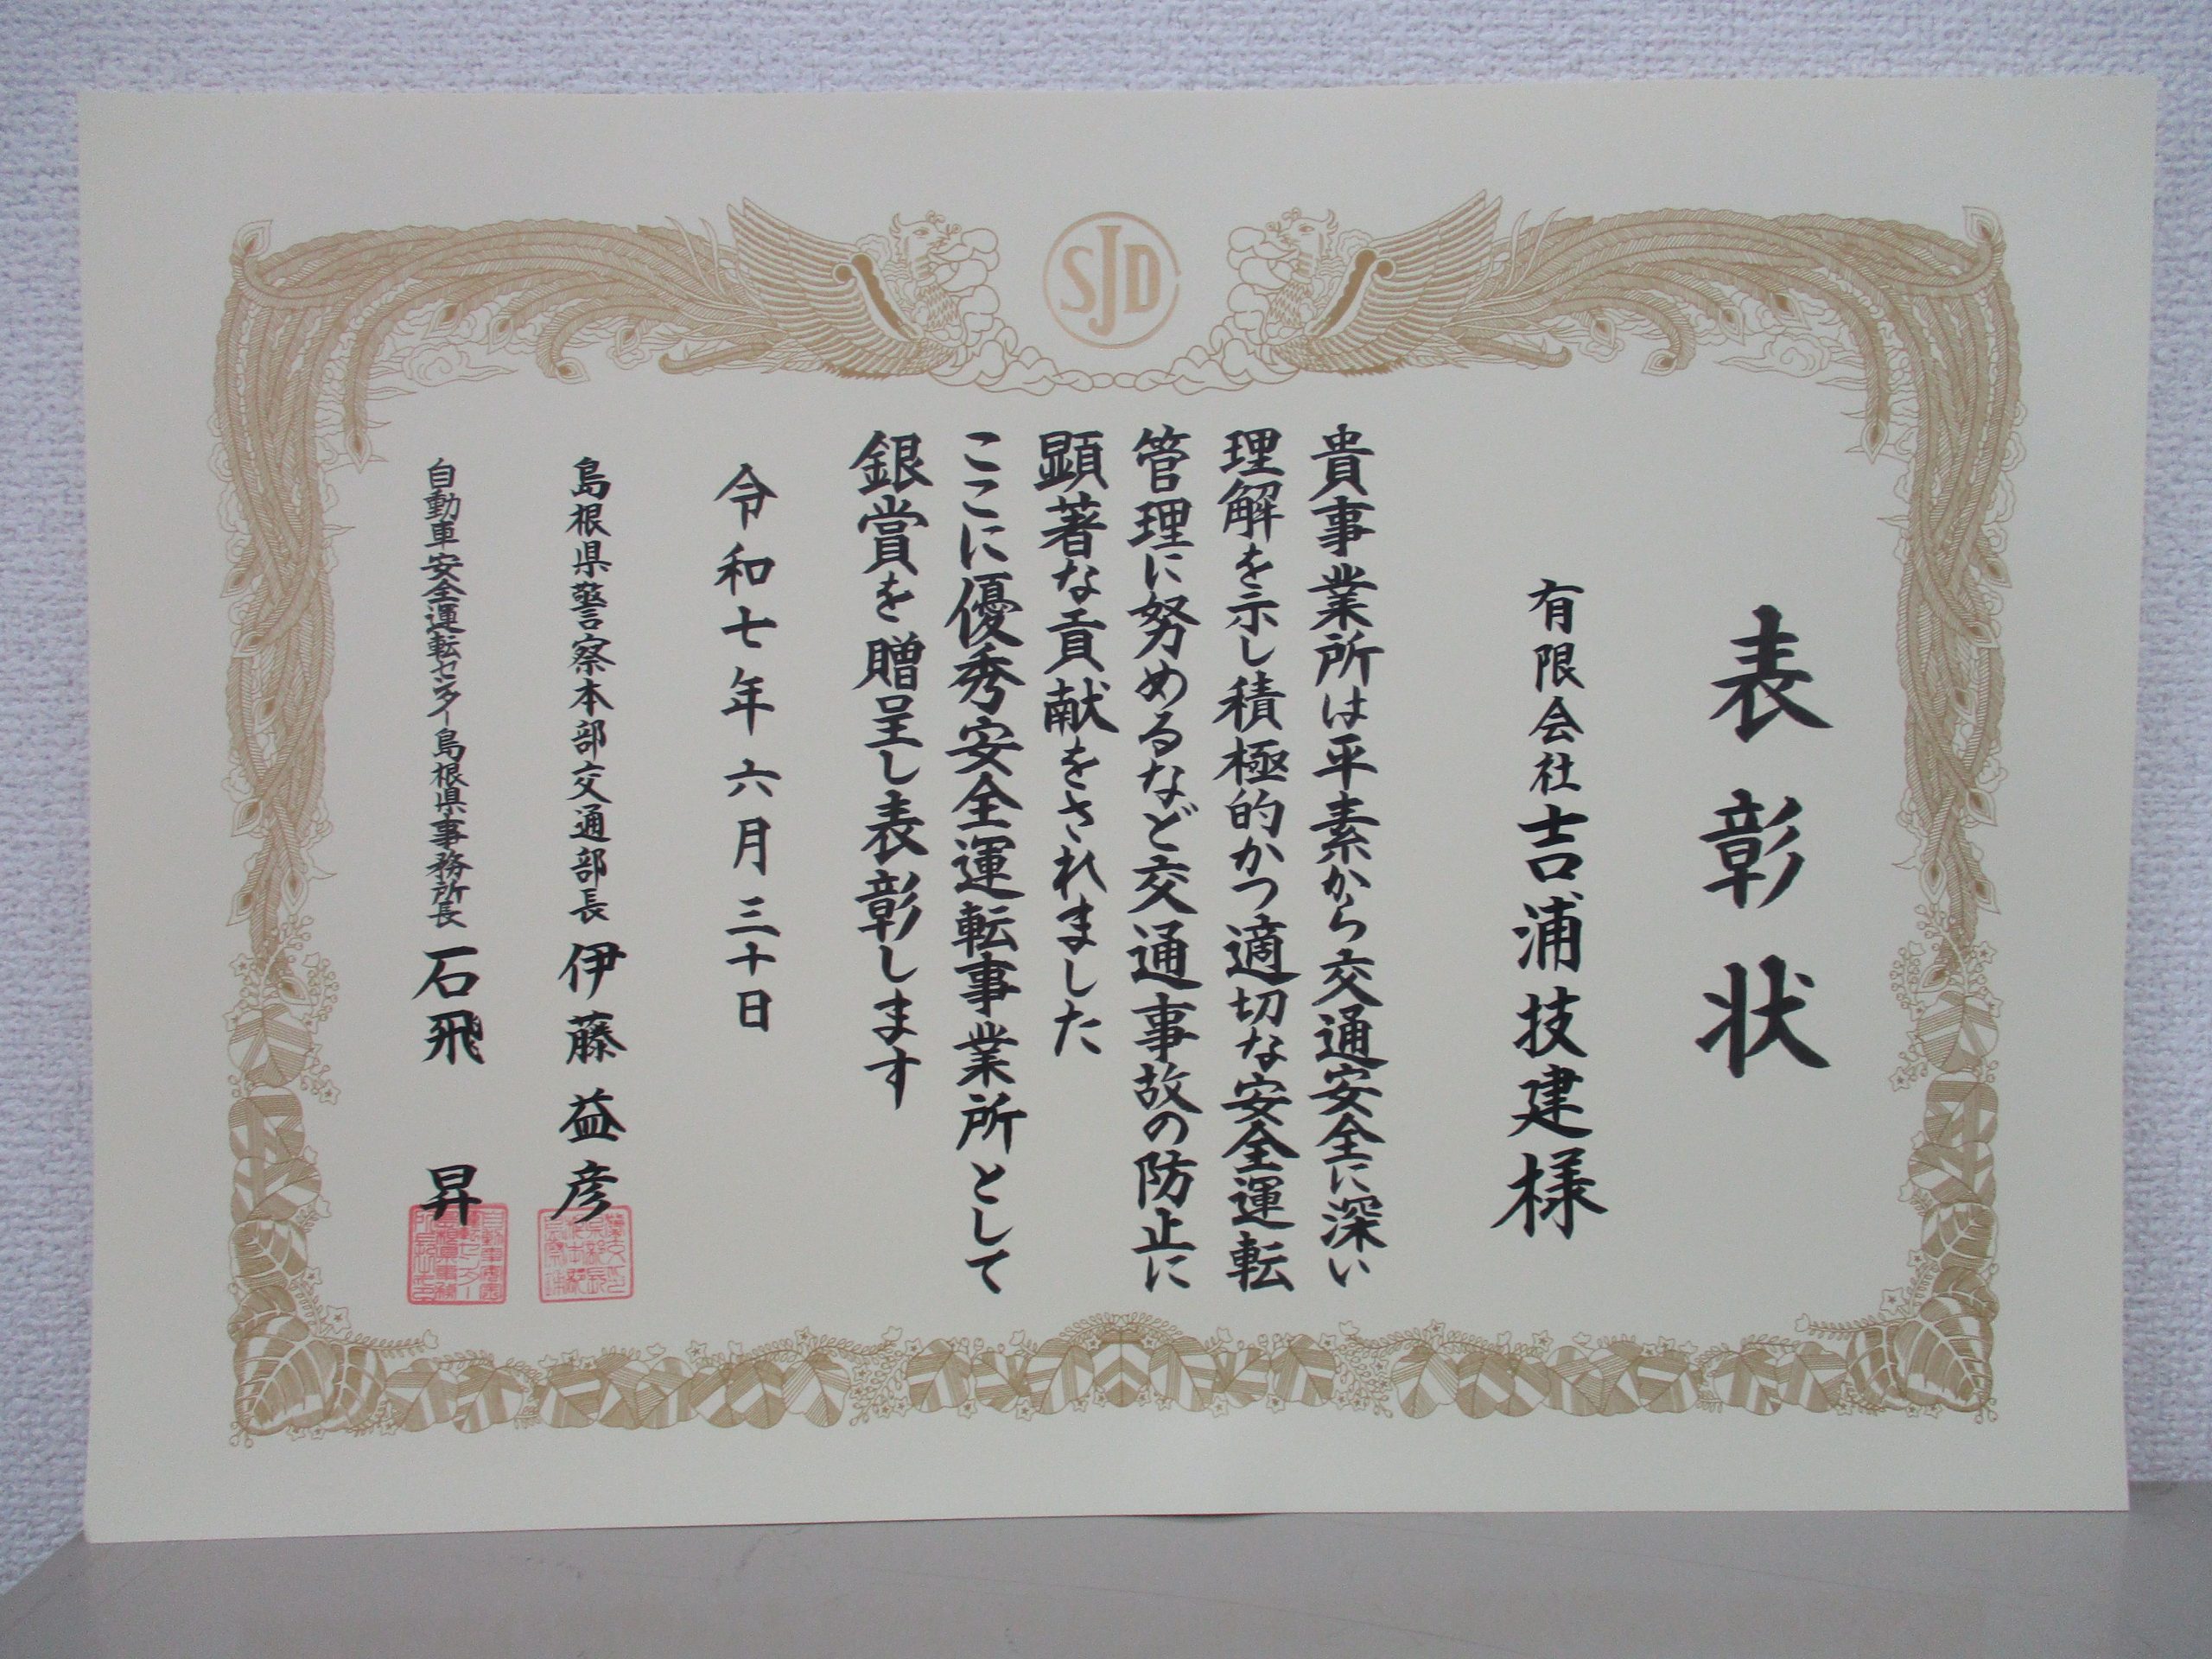 SJD
表彰状
有限会社吉浦技建様
貴事業所は平素から交通安全に深い
理解を示し積極的かつ適切な安全運転
管理に努めるなど交通事故の防止に
顕著な貢献をされました
ここに優秀安全運転事業所として
銀賞を贈呈し表彰します
令和七年六月三十日
島根県警察本部交通部長 伊藤益彦
自動車安全運転センター島根県事務所長 石飛 昇